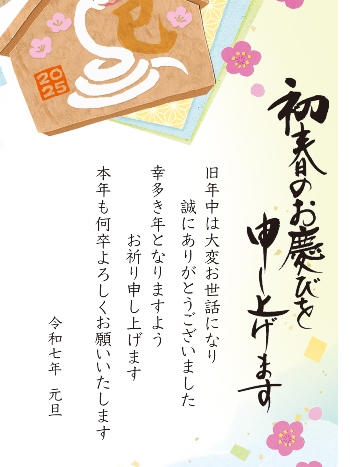 初春のお慶びを
申し上げます
旧年中は大変お世話になり
誠にありがとうございました
幸多き年となりますよう
お祈り申し上げます
本年も何卒よろしくお願いいたします
令和七年 元旦
巳
2025